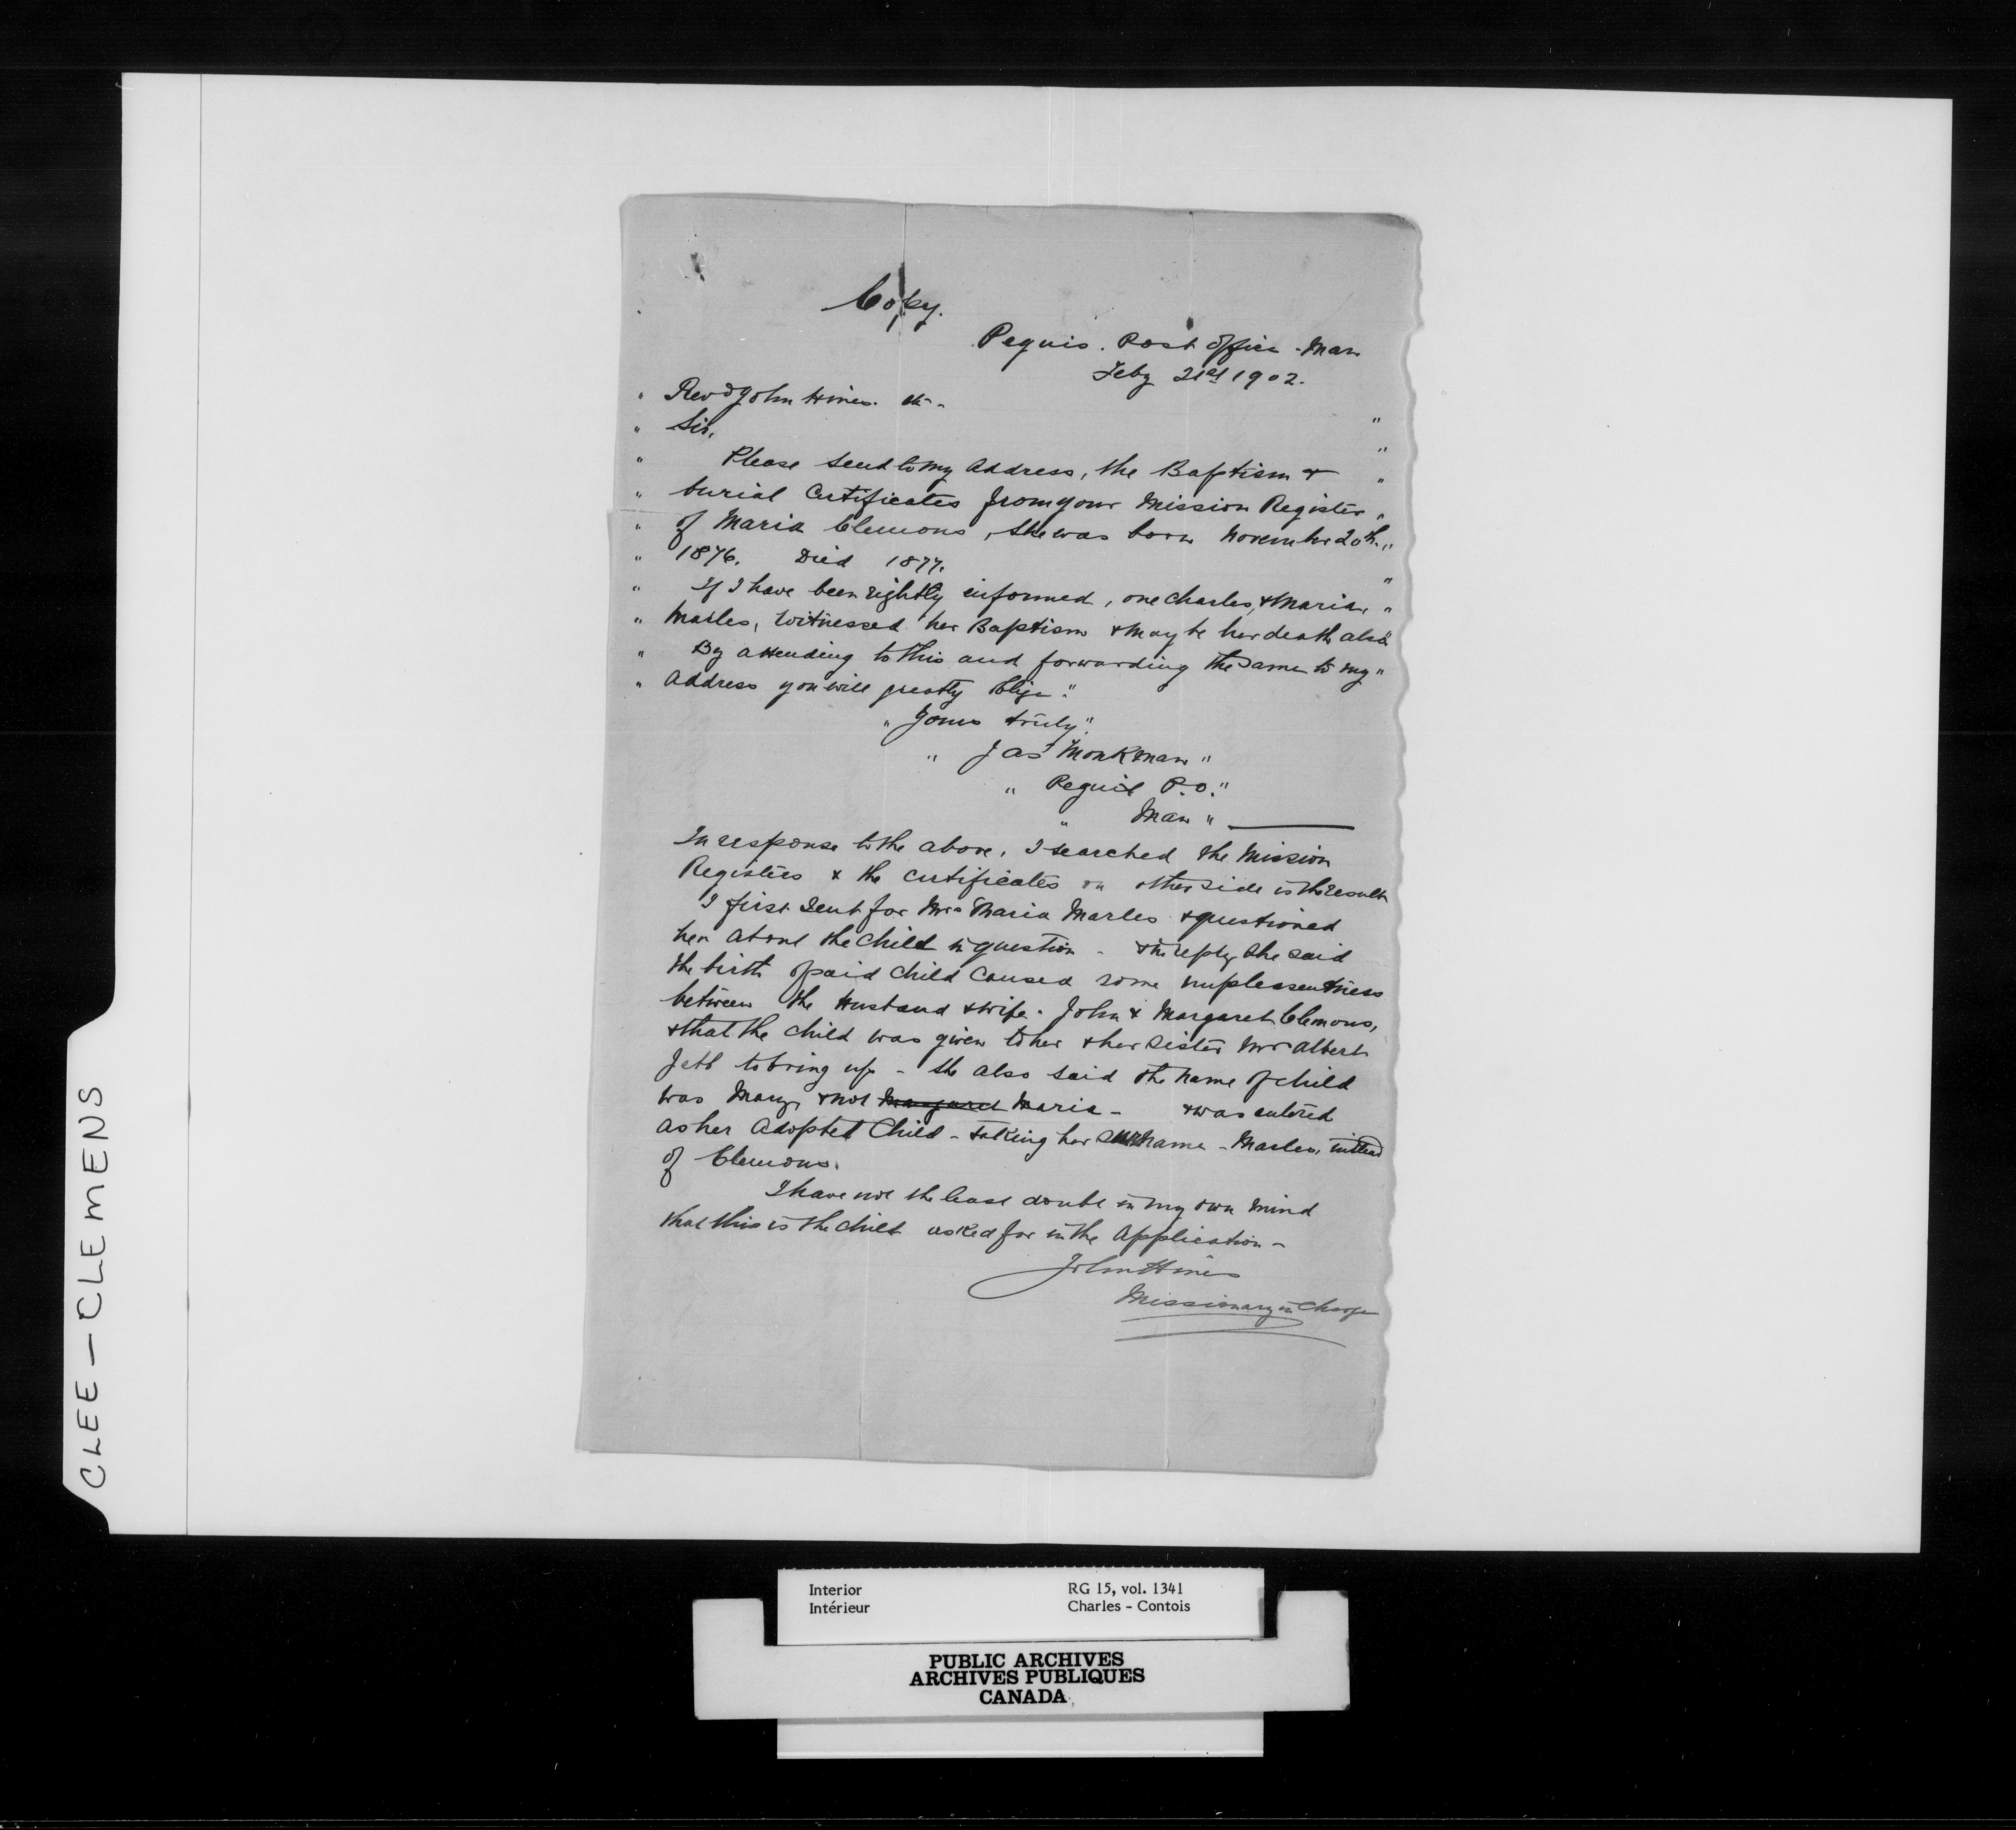 Copy.
Peguis. Post Office - Man
Feby 21st 1902.
" Revd John Hines. &c -
" Sir, "
" Please send to my address, the Baptism & "
" burial Certificates from your Mission Register "
" of Maria Clemons, she was born November 20th. "
" 1876. Died 1877. "
" If I have been rightly informed, one Charles, & Maria, "
" Marles, witnessed her Baptism & may be her death also "
" By attending to this and forwarding the same to my "
" address you will greatly oblige. "
" Yours truly "
" Jas Monkman "
" Peguis P.O. "
" Man "
In response to the above, I searched the Mission
Registers & the certificates on other side is the result
I first sent for Mrs Maria Marles & questioned
her about the child in question - & in reply she said
the birth of said child caused some unpleasentness
between the Husband & wife. John & Margaret Clemons,
& that the child was given to her & her sister Mrs Albert
Jebb to bring up - she also said the name of child
was Mary & not Margaret Maria - & was entered
as her adopted Child - taking her surname - Marles, instead
of Clemons.
I have not the least doubt in my own mind
that this is the child asked for in the Application -
John Hines
Missionary in Charge
CLEE - CLEMENS
Interior RG 15, vol. 1341
Intérieur Charles - Contois
PUBLIC ARCHIVES
ARCHIVES PUBLIQUES
CANADA